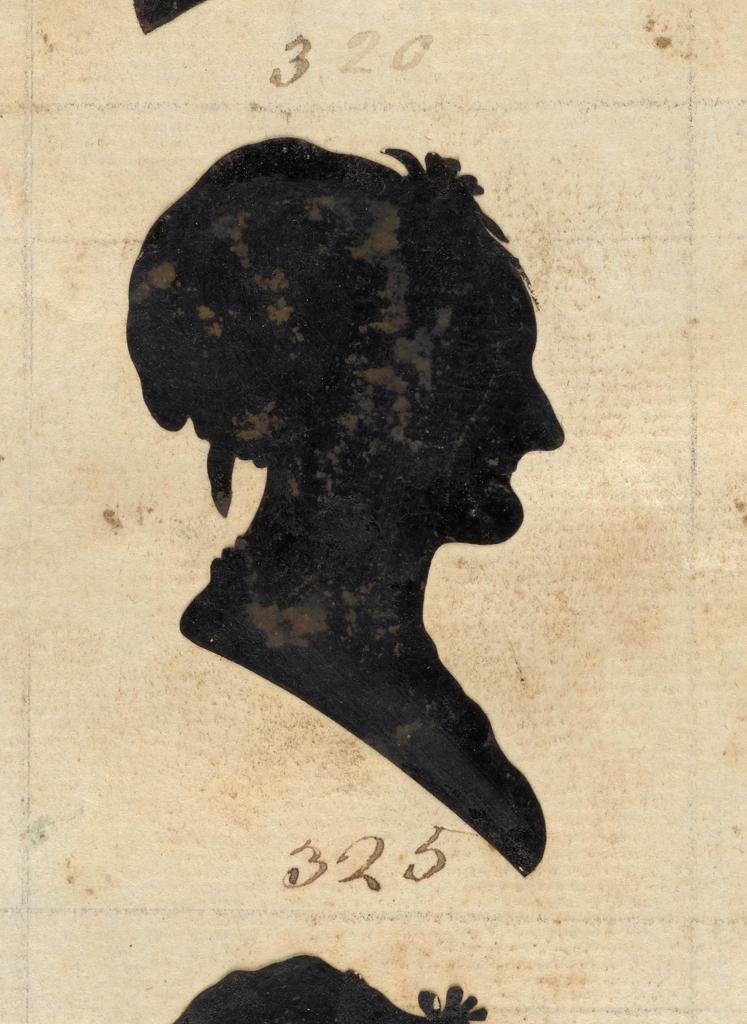 320
325